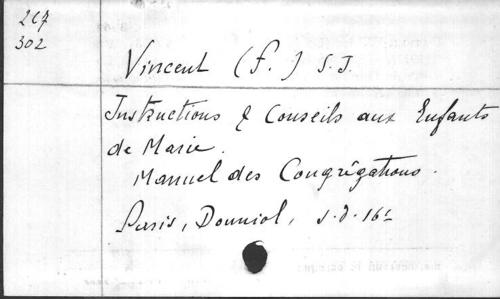 267
302
Vincent (f.) S.J.
Instructions & Conseils aux Enfants
de Marie.
Manuel des Congrégations.
Paris, Douniol, s.d. 16º